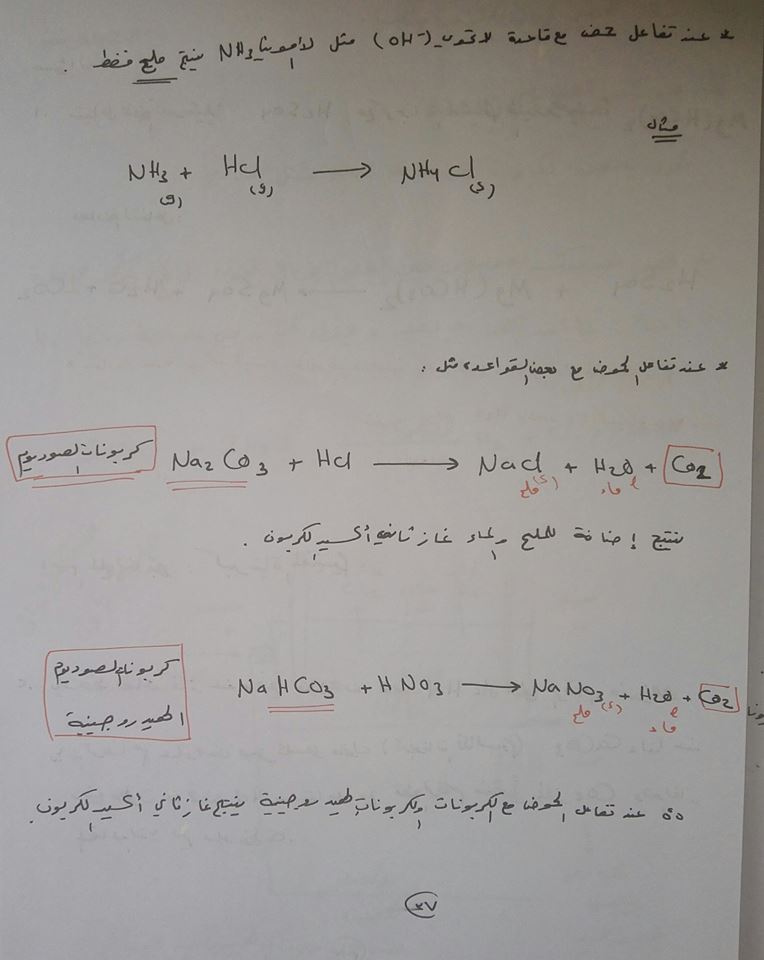 * عند تفاعل حمض مع قاعدة لا تحوي (OH⁻) مثل الأمونيا NH3 ينتج ملح فقط .
مثال
NH3 (g) + HCl (g) → NH4Cl (s)
* عند تفاعل الحموض مع بعض القواعد، مثل :
كربونات الصوديوم Na2CO3 + HCl → NaCl (s) + H2O l + CO2
ملح ماء
ينتج إضافة للملح والماء غاز ثاني أكسيد الكربون .
كربونات الصوديوم
الهيدروجينية
NaHCO3 + HNO3 → NaNO3 (s) + H2O l + CO2
ملح ماء
∴ عند تفاعل الحموض مع الكربونات والكربونات الهيدروجينية ينتج غاز ثاني أكسيد الكربون .
٣٧